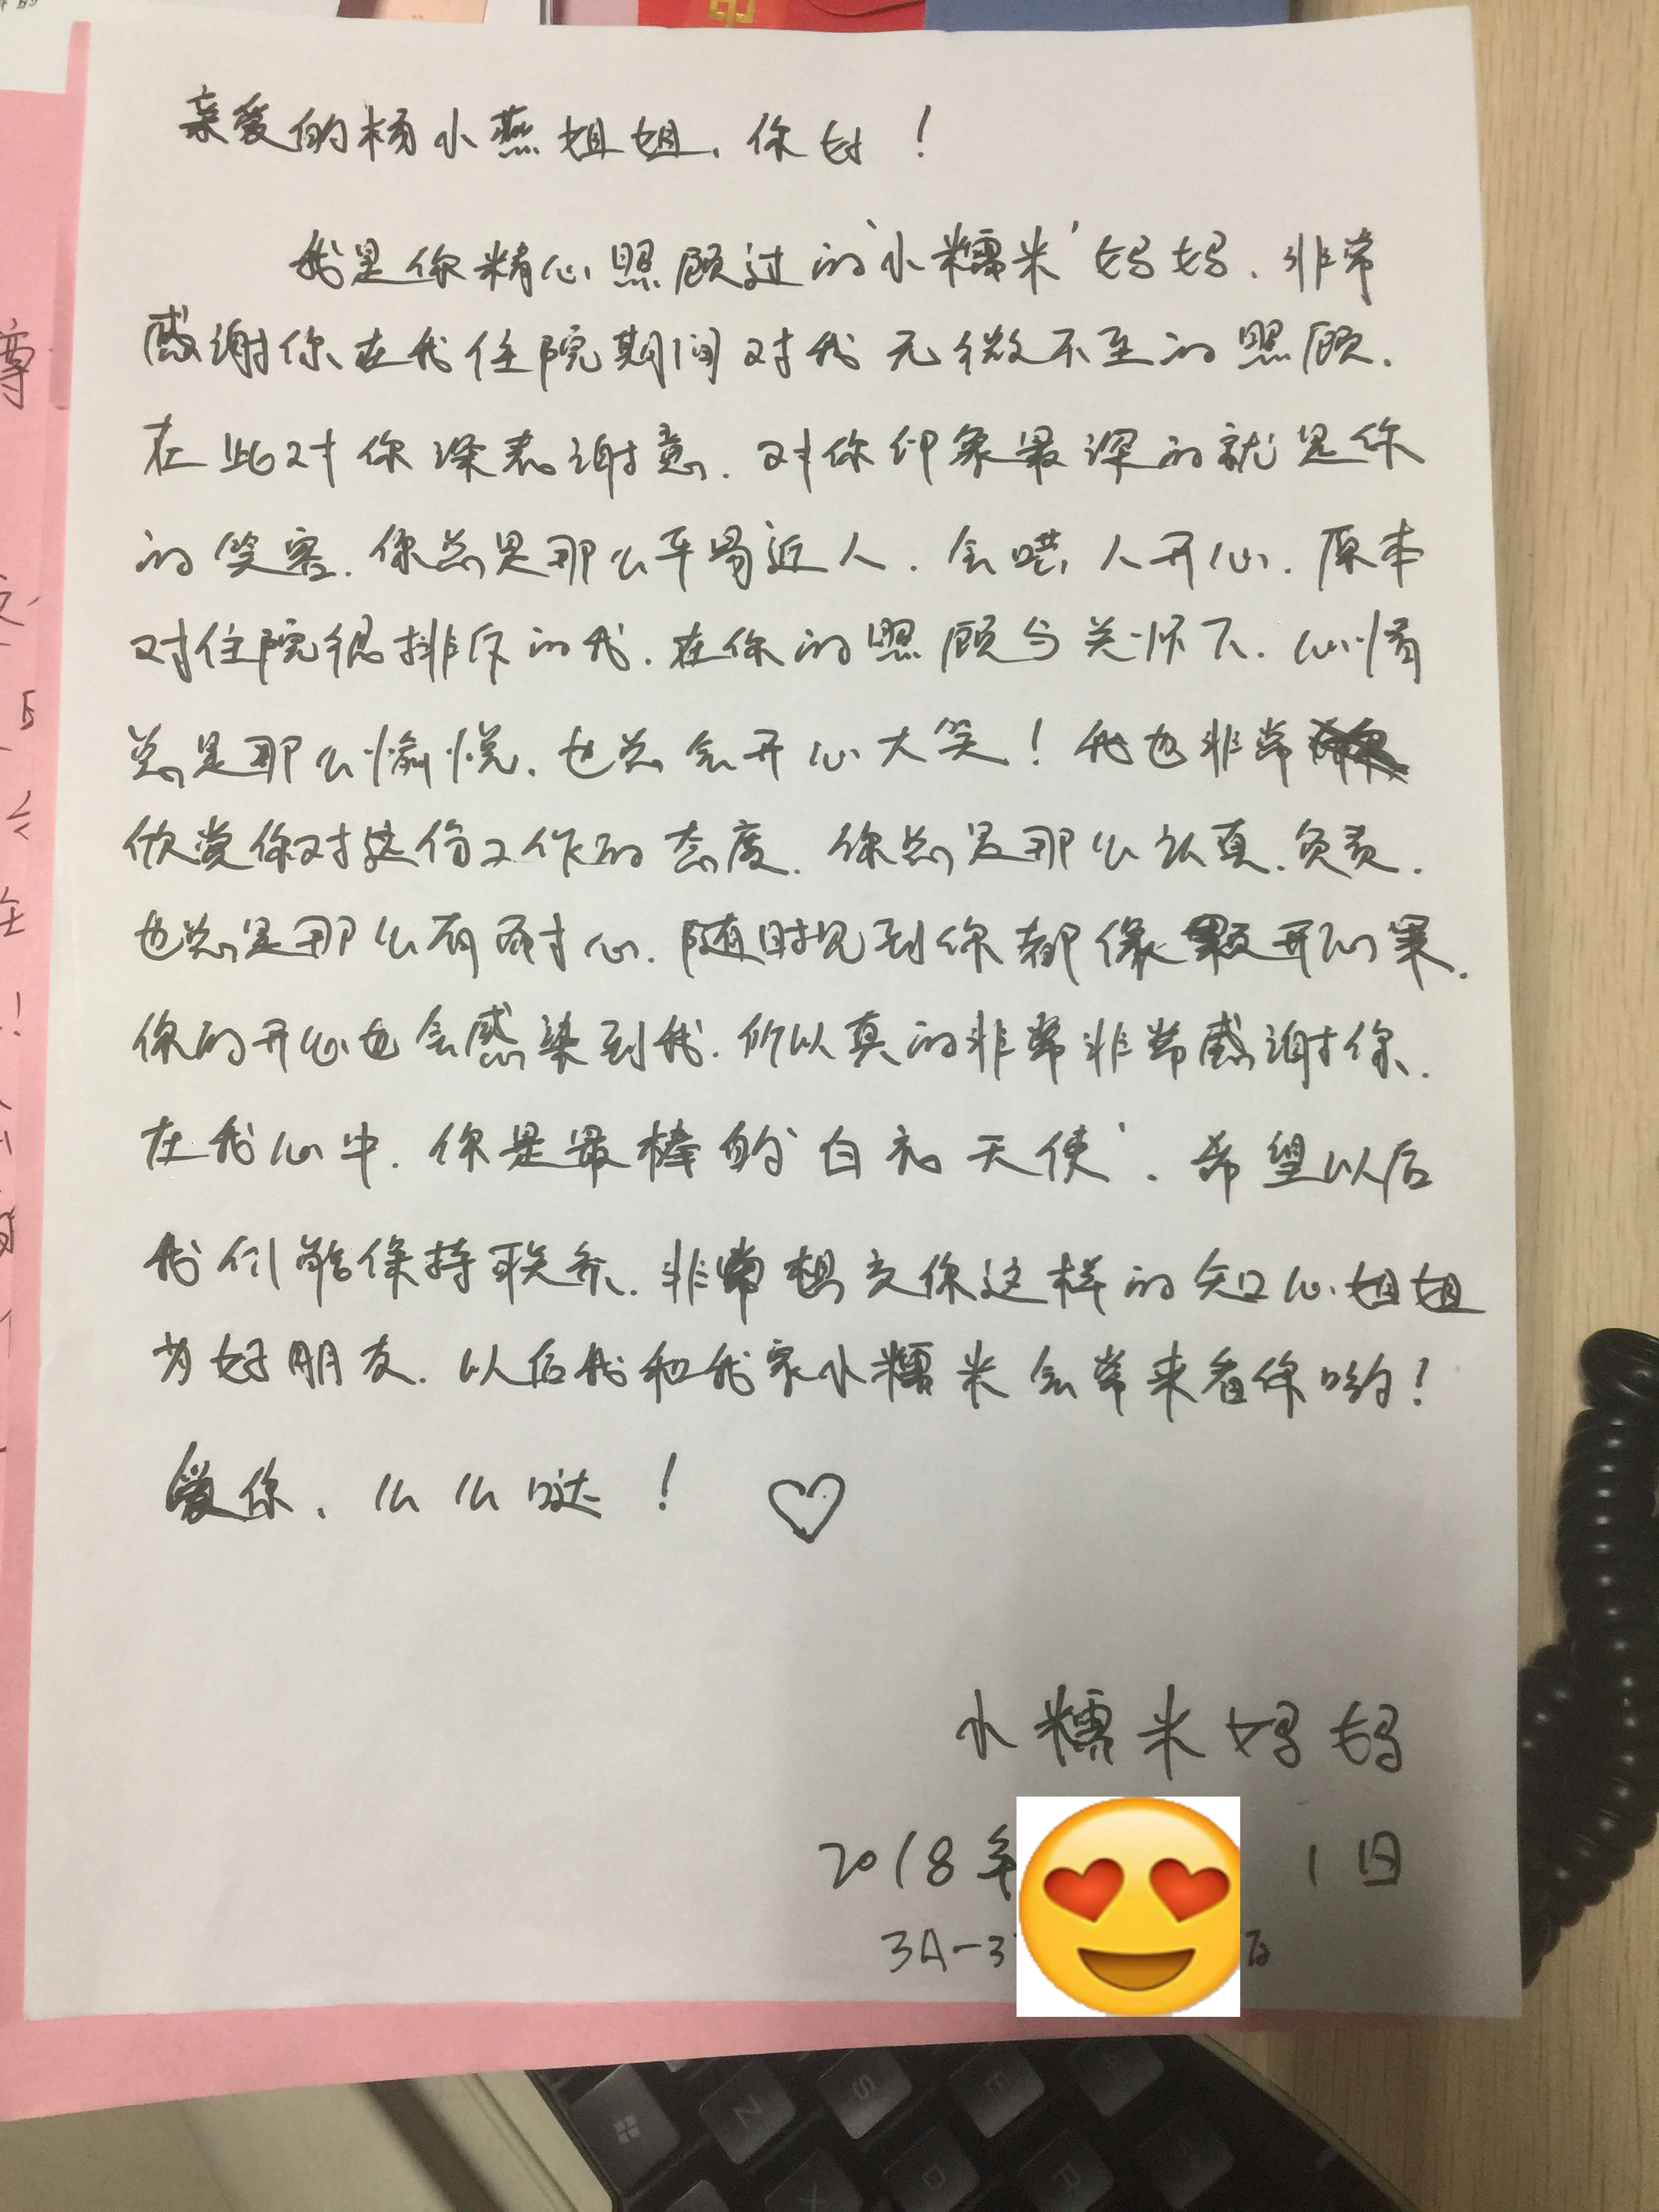 亲爱的杨小燕姐姐，你好！
我是你精心照顾过的‘小糯米’妈妈，非常
感谢你在我住院期间对我无微不至的照顾，
在此对你深表谢意，对你印象最深的就是你
的笑容，你总是那么平易近人，会哄人开心，原本
对住院很排斥的我，在你的照顾与关怀下，心情
总是那么愉悦，也总会开心大笑！我也非常
欣赏你对这份工作的态度，你总是那么认真、负责，
也总是那么有耐心，随时见到你都像颗开心果，
你的开心也会感染到我，所以真的非常非常感谢你，
在我心中，你是最棒的‘白衣天使’，希望以后
我们能保持联系，非常想交你这样的知心姐姐
为好朋友，以后我和我家小糯米会常来看你哟！
爱你，么么哒！♡
小糯米妈妈
2018年 1日
3A-3